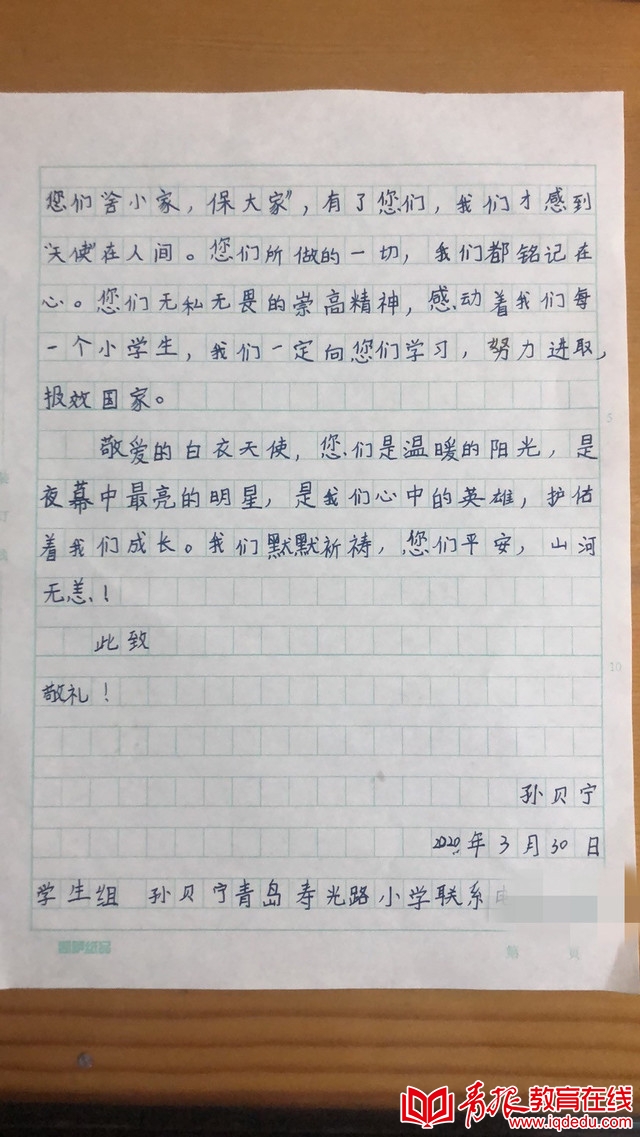 您们“舍小家，保大家”，有了您们，我们才感到
“天使”在人间。您们所做的一切，我们都铭记在
心。您们无私无畏的崇高精神，感动着我们每
一个小学生，我们一定向您们学习，努力进取，
报效国家。
敬爱的白衣天使，您们是温暖的阳光，是
夜幕中最亮的明星，是我们心中的英雄，护估
着我们成长。我们默默祈祷，您们平安，山河
无恙！
此致
敬礼！
孙贝宁
2020年3月30日
学生组 孙贝宁青岛寿光路小学联系
5
10
第 页
青报教育在线
www.iqdedu.com